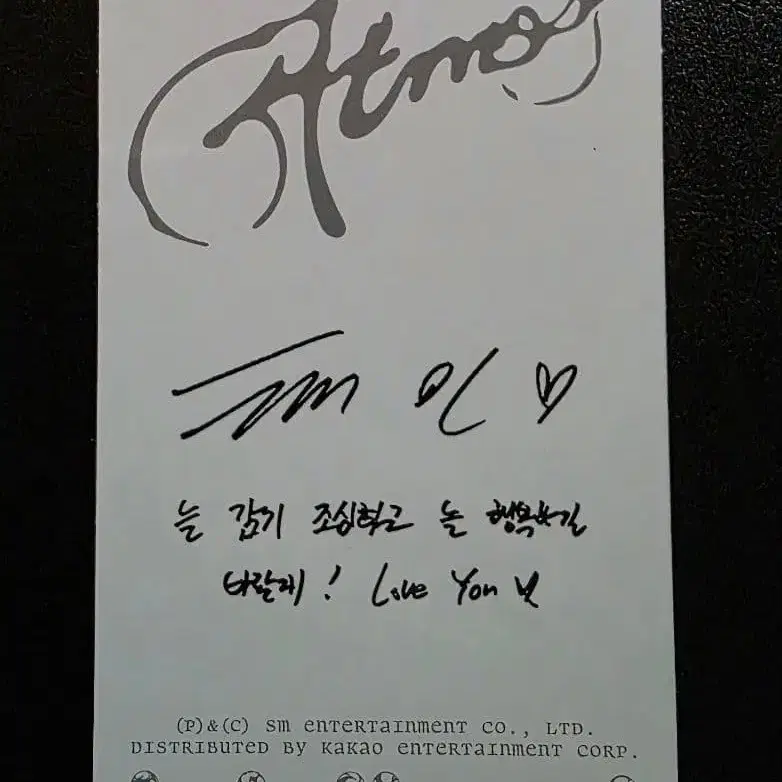 Atmos
늘 감기 조심하고 늘 행복하길
바랄게! Love You
(P)&(C) SM ENTERTAINMENT CO., LTD.
DISTRIBUTED BY KAKAO ENTERTAINMENT CORP.